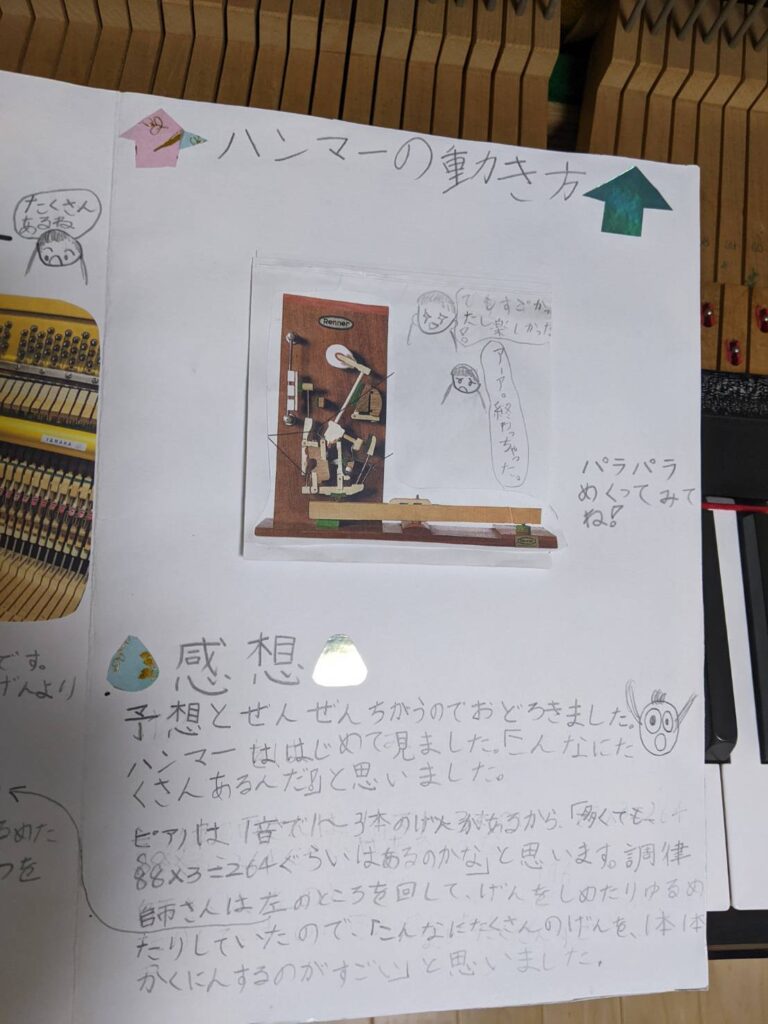 ハンマーの動き方
たくさん
あるね
Renner
とてもすごかっ
たし楽しかった
アーア。終わっちゃった。
パラパラ
めくってみて
ね!
YAMAHA
です。
げんより
るめた
つを
感想
予想とぜんぜんちがうのでおどろきました。
ハンマーははじめて見ました。「こんなにた
くさんあるんだ」と思いました。
ピアノは1音で1〜3本のげんがあるから、「多くても
88×3=264ぐらいはあるのかな」と思います。調律
師さんは左のところを回して、げんをしめたりゆるめ
たりしていたので、「こんなにたくさんのげんを、1本1本
かくにんするのがすごい」と思いました。